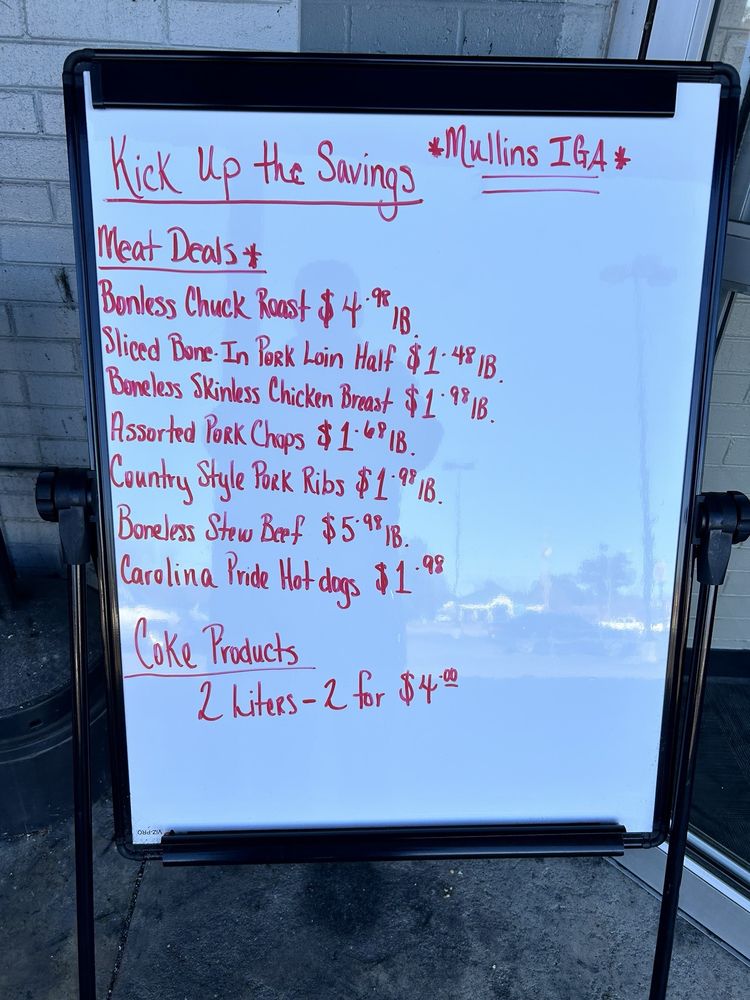 Kick Up the Savings
*Mullins IGA*
Meat Deals*
Bonless Chuck Roast $4.98 lB.
Sliced Bone-In Pork Loin Half $1.48 lB.
Boneless Skinless Chicken Breast $1.98 lB.
Assorted Pork Chops $1.68 lB.
Country Style Pork Ribs $1.98 lB.
Boneless Stew Beef $5.98 lB.
Carolina Pride Hot dogs $1.98
Coke Products
2 Liters - 2 for $4.00
VIZ-PRO